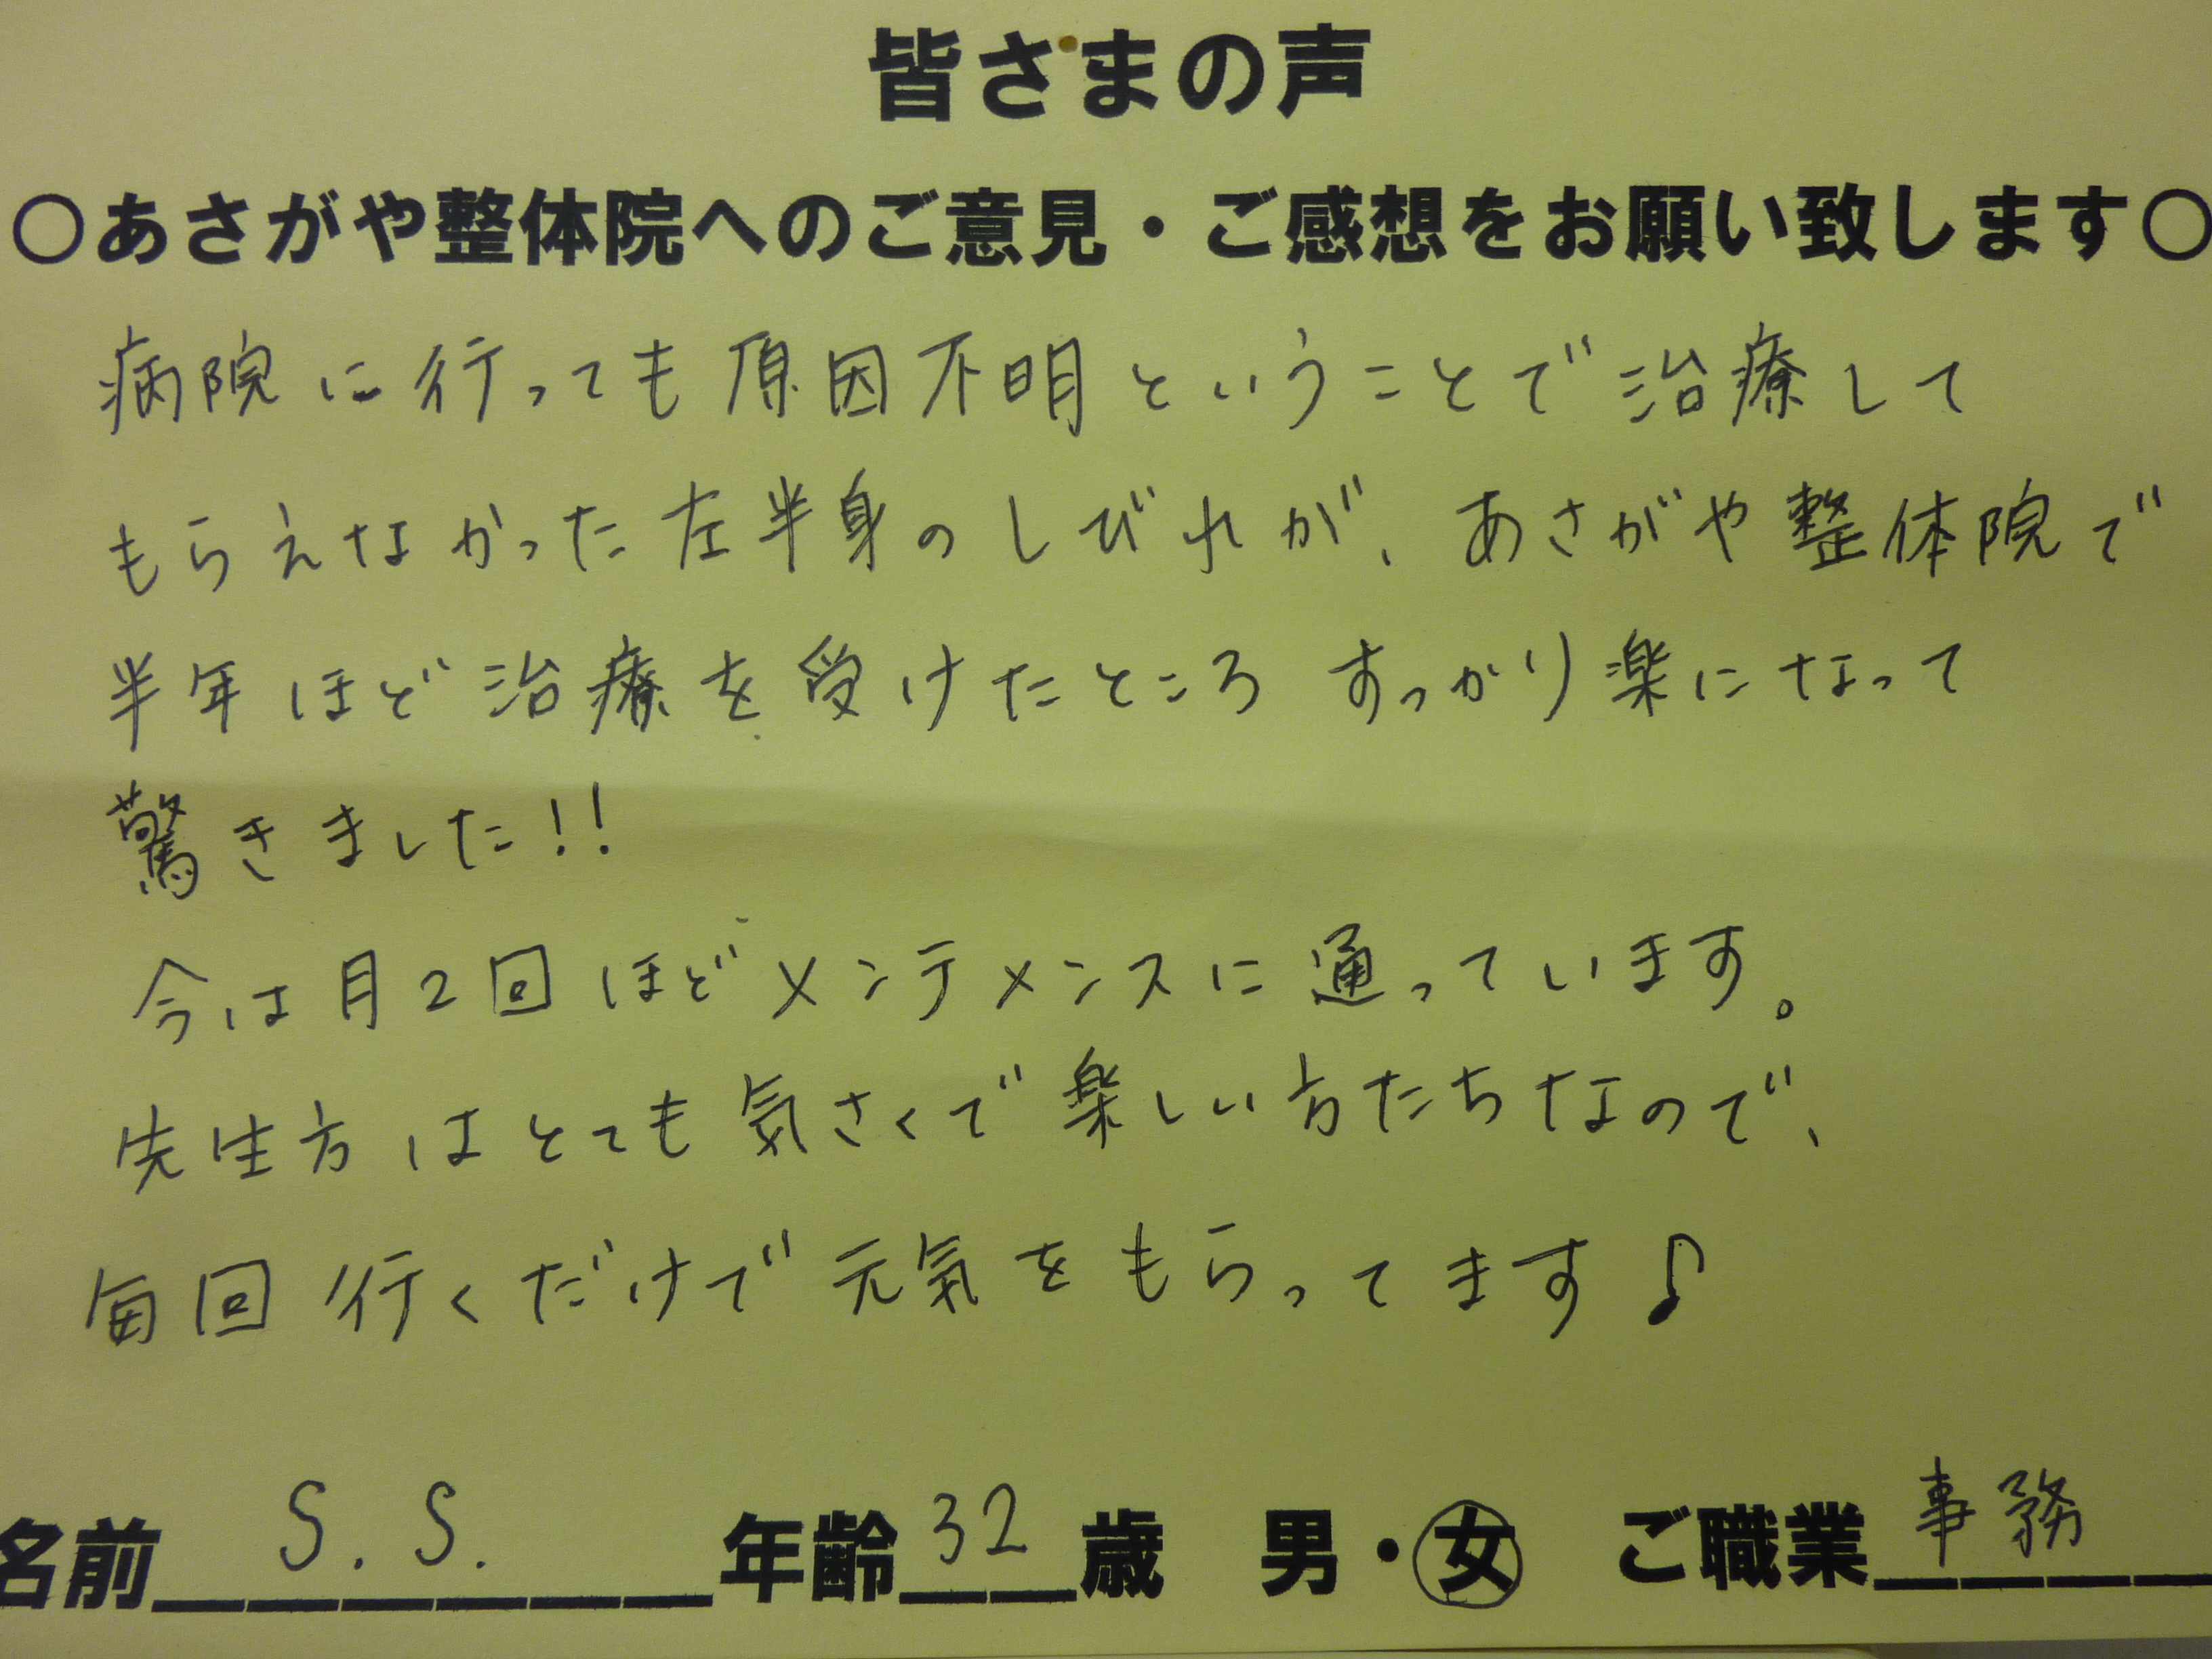 皆さまの声
○あさがや整体院へのご意見・ご感想をお願い致します○
病院に行っても原因不明ということで治療して
もらえなかった左半身のしびれが、あさがや整体院で
半年ほど治療を受けたところすっかり楽になって
驚きました!!
今は月2回ほどメンテメンスに通っています。
先生方はとても気さくで楽しい方たちなので、
毎回行くだけで元気をもらってます♪
名前 S.S. 年齢 32 歳 男・女 ご職業 事務